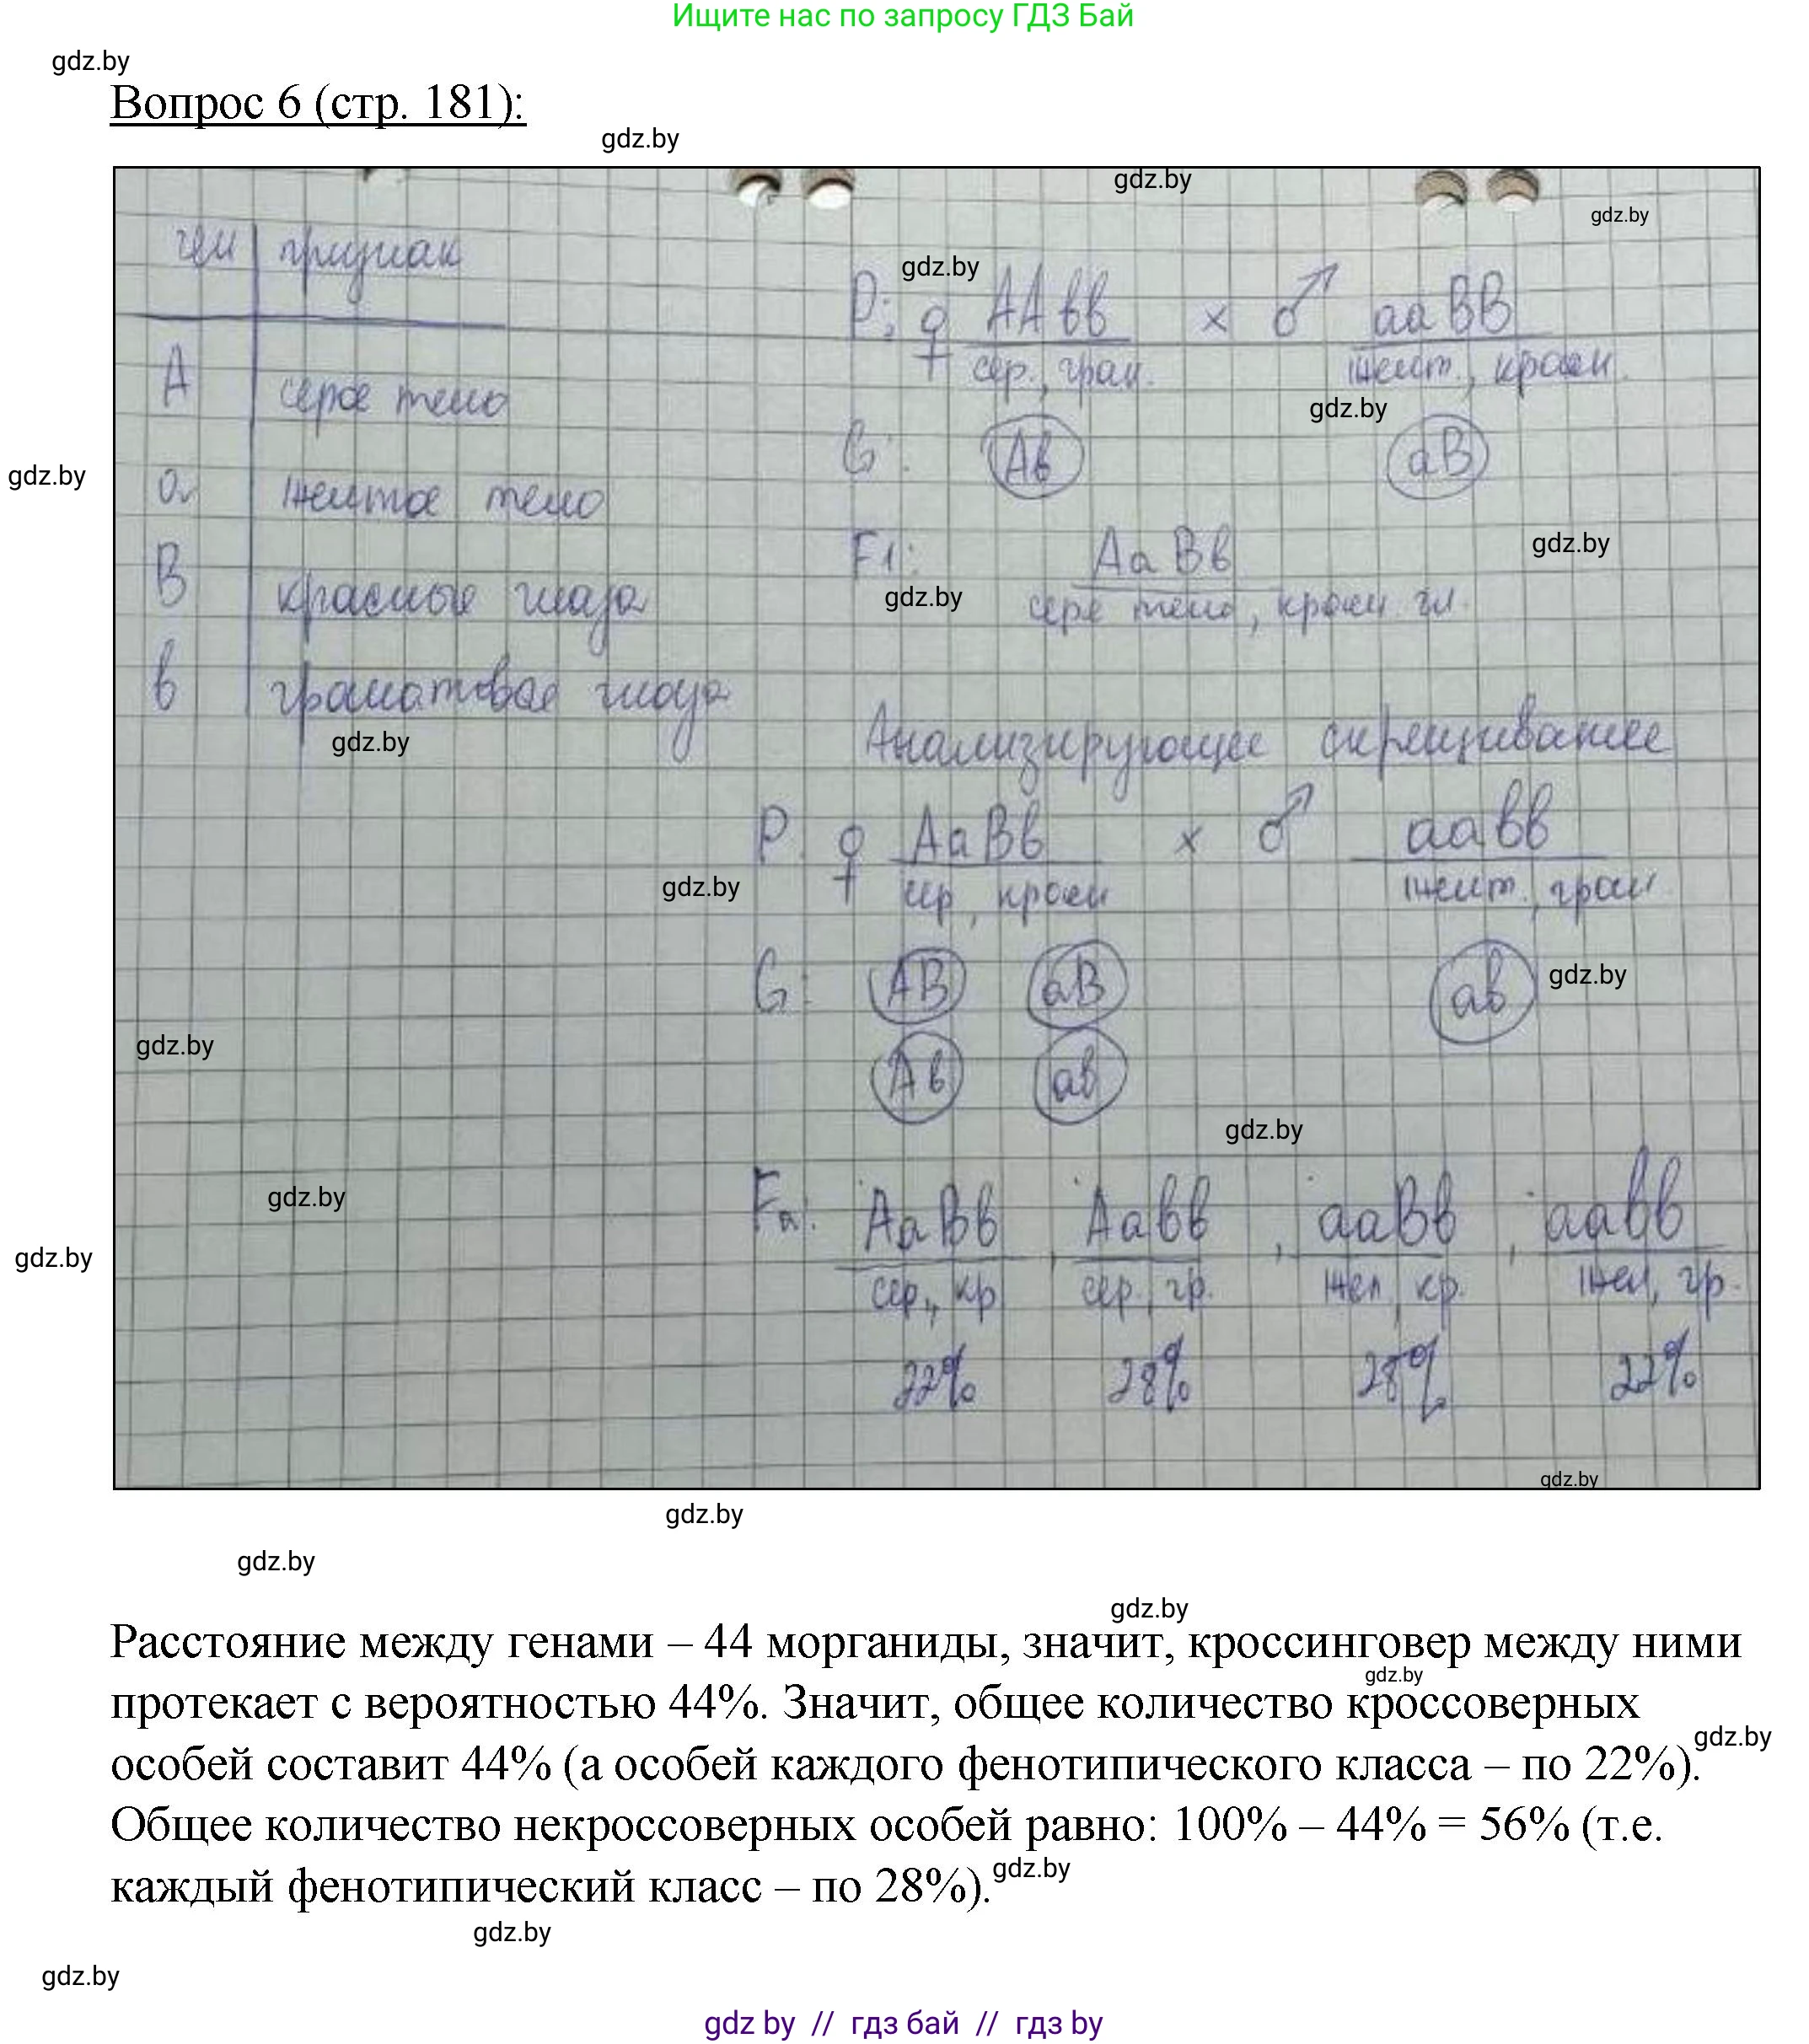 Ищите нас по запросу ГДЗ Бай
gdz.by
Вопрос 6 (стр. 181):
gdz.by
gdz.by
gdz.by
ген признак
gdz.by
P: ♀ ААвв × ♂ ааВВ
сер., гран. желт., красн.
А серое тело
gdz.by
G: Ав аВ
gdz.by
а желтое тело
F1: АаВв
gdz.by
В красные глаза
gdz.by
серое тело, красн. гл.
в гранатовые глаза
gdz.by
Анализирующее скрещивание
P. ♀ АаВв × ♂ аавв
gdz.by
сер, красн желт., гран.
G: АВ аВ ав
gdz.by
gdz.by
Ав ав
gdz.by
gdz.by
Fа: АаВв, Аавв, ааВв, аавв
gdz.by
сер., кр сер., гр. жел, кр. жел, гр.
22% 28% 28% 22%
gdz.by
gdz.by
gdz.by
gdz.by
Расстояние между генами – 44 морганиды, значит, кроссинговер между ними
gdz.by
протекает с вероятностью 44%. Значит, общее количество кроссоверных
gdz.by
особей составит 44% (а особей каждого фенотипического класса – по 22%).
Общее количество некроссоверных особей равно: 100% – 44% = 56% (т.е.
каждый фенотипический класс – по 28%).
gdz.by
gdz.by
gdz.by
gdz by // гдз бай // гдз by